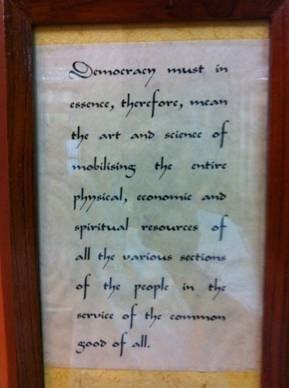 Democracy must in
essence, therefore, mean
the art and science of
mobilising the entire
physical, economic and
spiritual resources of
all the various sections
of the people in the
service of the common
good of all.